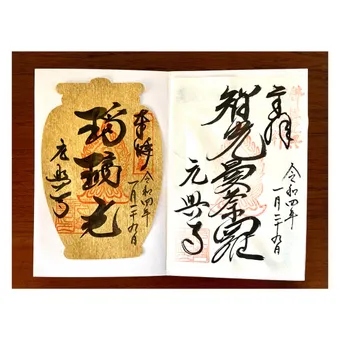 奉拝
令和四年
一月二十九日
智光曼荼羅
元興寺
奉拝
令和四年
一月二十九日
瑠璃光
元興寺